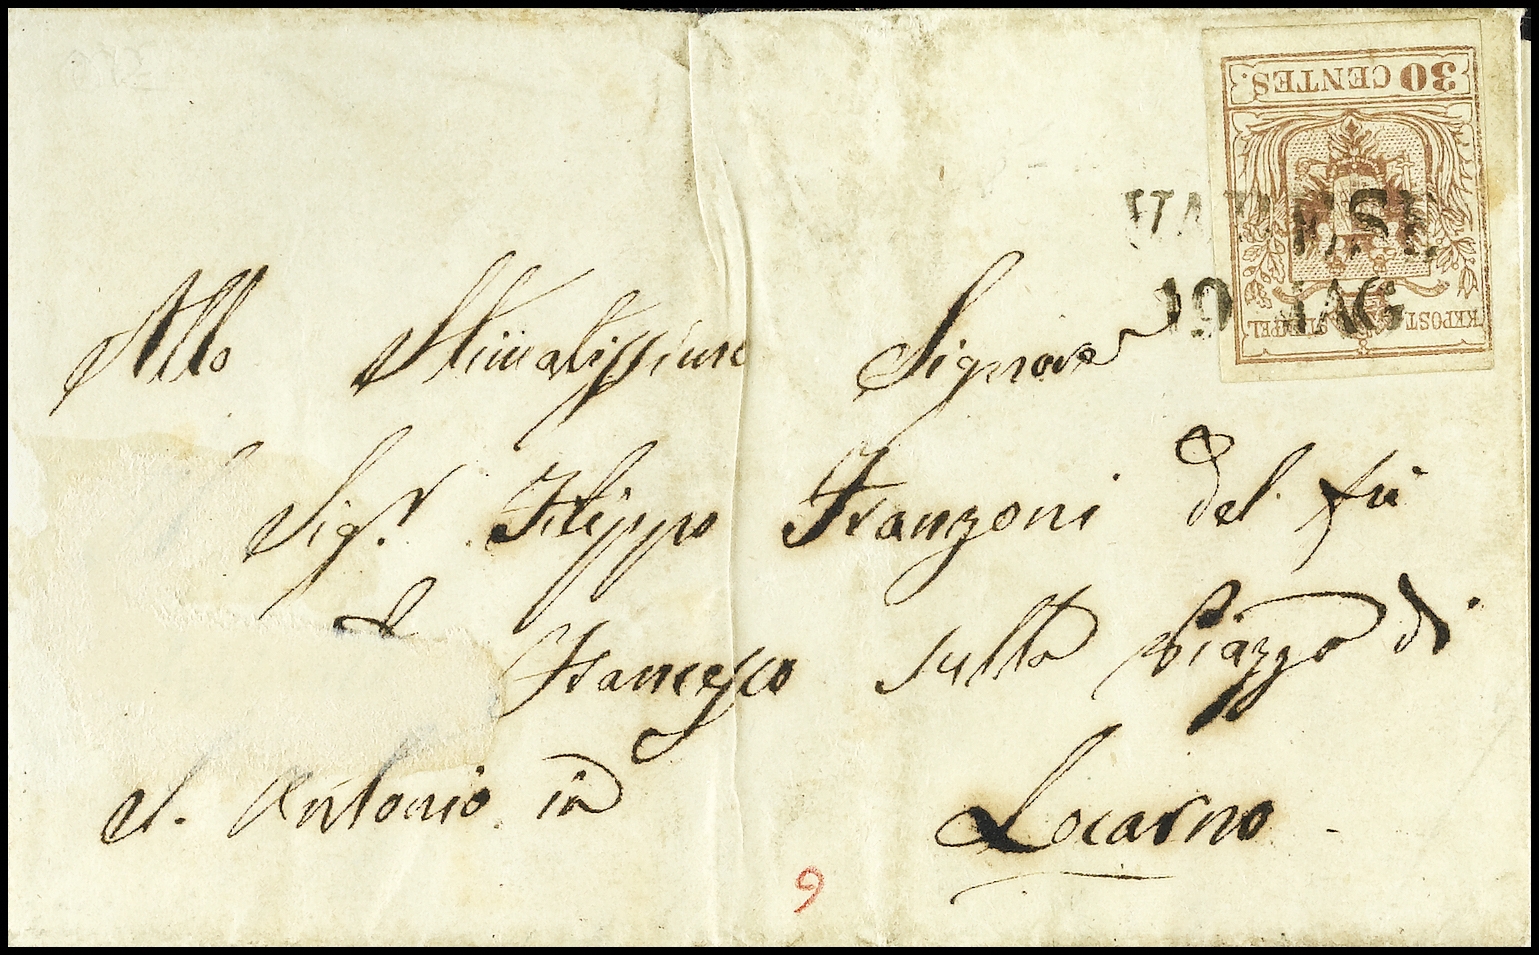 30 CENTES.
KKPOST-STEMPEL
VARESE
19 MAG
Allo Stimatissimo Signore
Sig.r Filippo Franzoni del fù
Francesco sulla Piazza di
S. Antonio in Locarno
9